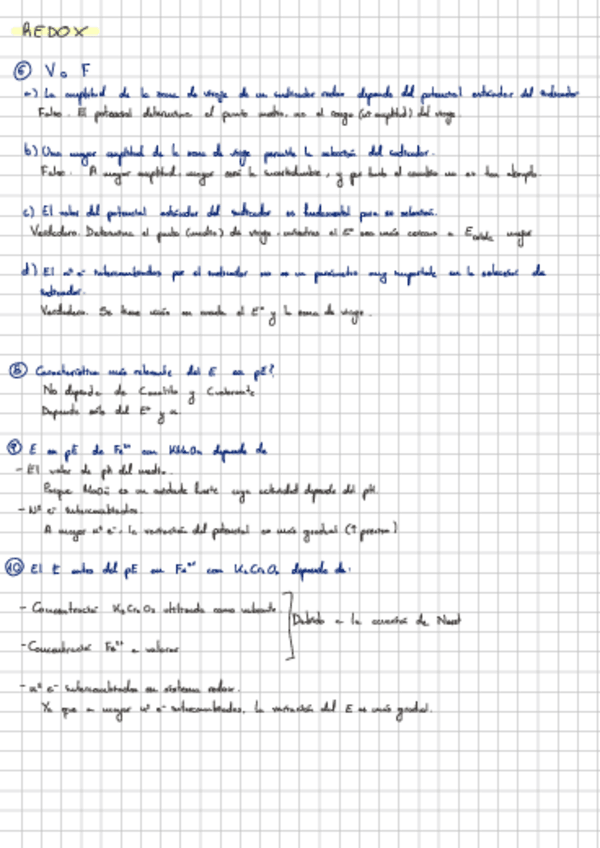 REDOX
⑥ V o F
a) La amplitud de la zona de viraje de un indicador redox depende del potencial estándar del indicador
Falso. El potencial determina el punto medio, no el rango (o amplitud) del viraje.
b) Una mayor amplitud de la zona de viraje permite la selección del indicador.
Falso. A mayor amplitud, mayor será la incertidumbre, y por tanto el cambio no es tan abrupto.
c) El valor del potencial estándar del indicador es fundamental para su selección.
Verdadero. Determina el punto (medio) de viraje, mientras el E° sea más cercano a mejor
d) El nº e⁻ intercambiados por el indicador no es un parámetro muy importante en la selección de
indicador.
Verdadero. Se tiene más en cuenta el E° y la zona de viraje.
⑧ Característica más relevante del E en pE?
No depende de y
Depende sólo del E° y
⑨ E en pE de Fe²⁺ con KMnO₄ depende de
- El valor de pH del medio.
Porque MnO₄⁻ es un oxidante fuerte cuya actividad depende del pH
- Nº e⁻ intercambiados.
A mayor nº e⁻, la variación del potencial es más gradual (↑ )
⑩ El E antes del pE en Fe²⁺ con K₂Cr₂O₇ depende de:
- Concentración K₂Cr₂O₇ utilizado como valorante
Debido a la ecuación de Nernst
- Concentración Fe²⁺ a valorar
- nº e⁻ intercambiados en sistema redox.
Ya que a mayor nº e⁻ intercambiados, la variación del E es más gradual.